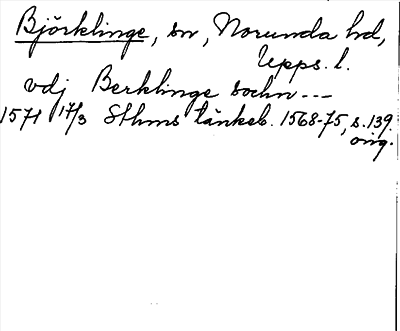 Björklinge, sn, Norunda hd,
Upps. l.
vdj Berklinge sochn ---
1571 17/3 Sthms tänkeb. 1568-75, s. 139.
orig.